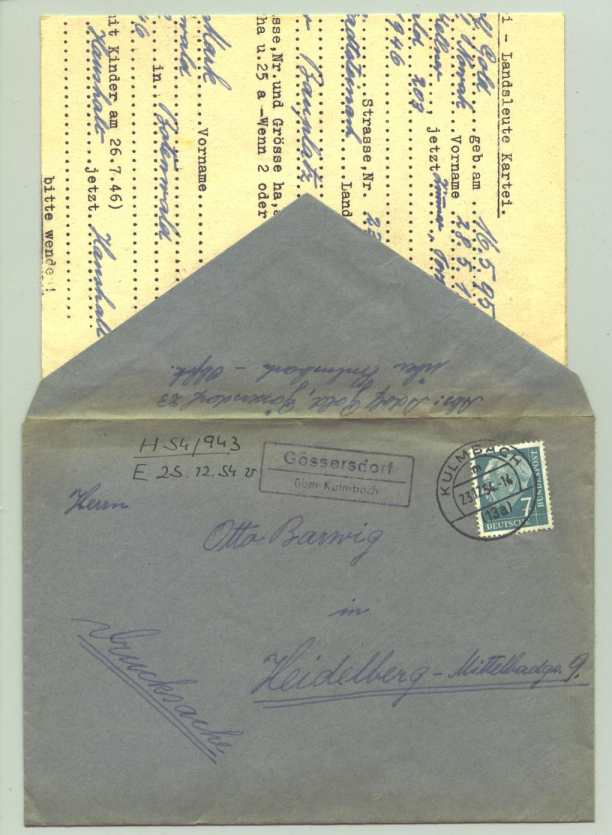 i - Landsleute Kartei.
Gold geb.am 16.5.95
Vorname 28.5.1
203, jetzt
1946
Strasse, Nr. 22
Land
Bauplatz
sse,Nr.und Grösse ha,a
ha u.25 a -Wenn 2 oder
Mark
Vorname
in
it Kinder am 26.7.46)
jetzt
bitte wenden!
Abs: Adolf Gold, Gössersdorf 23
über Kulmbach - Obfr.
H 54/943
E 25.12.54
Gössersdorf
über Kulmbach
KULMBACH
23.12.54-14
(13a)
7
DEUTSCHE BUNDESPOST
Herrn
Otto Barwig
in
Heidelberg - Mittelbadga. 9.
Drucksache